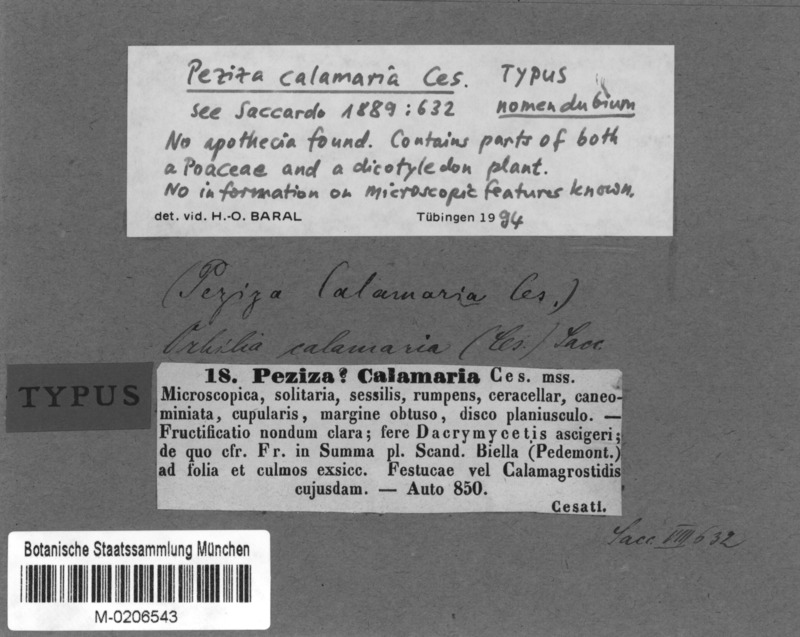 Peziza calamaria Ces. TYPUS
see Saccardo 1889:632 nomen dubium
No apothecia found. Contains parts of both
a Poaceae and a dicotyledon plant.
No information on microscopic features known.
det. vid. H.-O. BARAL Tübingen 1994
(Peziza Calamaria Ces.)
Orbilia calamaria (Ces.) Sacc
TYPUS
18. Peziza? Calamaria Ces. mss.
Microscopica, solitaria, sessilis, rumpens, ceracellar, caneo-
miniata, cupularis, margine obtuso, disco planiusculo. —
Fructificatio nondum clara; fere Dacrymycetis ascigeri;
de quo cfr. Fr. in Summa pl. Scand. Biella (Pedemont.)
ad folia et culmos exsicc. Festucae vel Calamagrostidis
cujusdam. — Auto 850.
Cesati.
Sacc VIII 632
Botanische Staatssammlung München
M-0206543